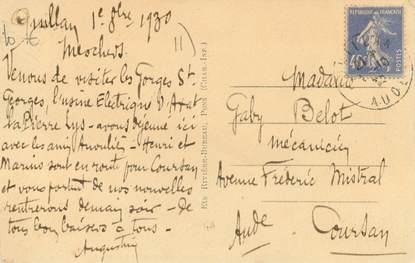 Quillan 1e 8bre 1930
Mes chers.
Venons de visiter les Gorges St
Georges, l'usine Electrique d'
la Pierre Lys - avons déjeuné ici
avec les amis - Henri et
Marius sont en route pour Coursan
et vous portent de nos nouvelles
rentrerons demain soir - De
tous bons baisers à tous -
Augustin
Eds Rivière-Bureau, Pons (Char.-Inf.)
REPUBLIQUE FRANÇAISE
40c
POSTES
AUDE
Madame
Gaby Belot
mécanicien
Avenue Frédéric Mistral
Coursan
Aude